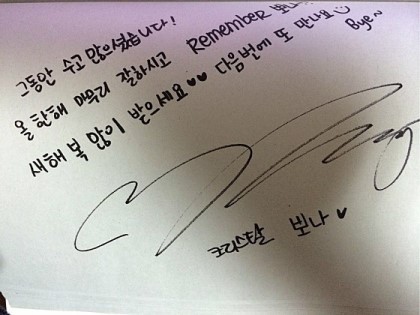 그동안 수고 많으셨습니다!
올 한해 마무리 잘하시고 Remember 뽀나
새해 복 많이 받으세요♥♥ 다음번에 또 만나요☺
Bye~
크리스탈 뽀나♥